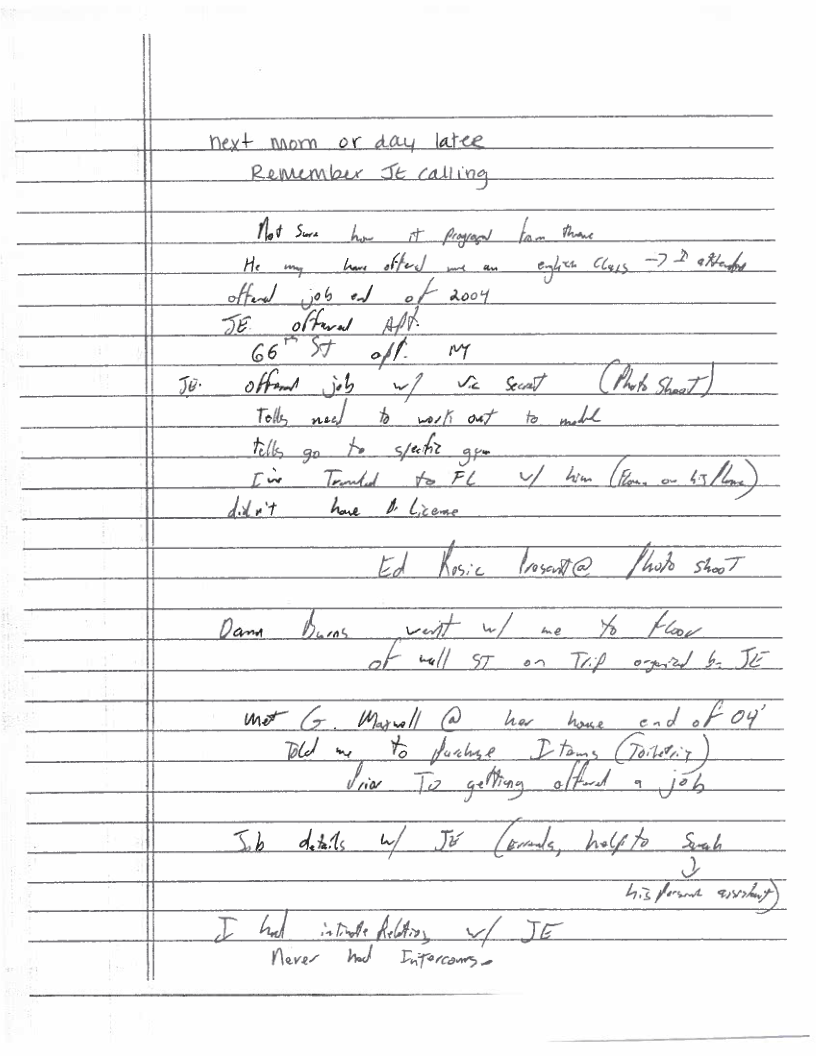 next morn or day later
Remember JE calling
Not Sure how it progressed from there
He may have offered me an english Class -> I attended
offered job end of 2004
JE. offered Apt.
66th ST apt. NY
JE. offered job w/ Vic Secret (Photo Shoot)
Tells need to work out to model
tells go to specific gym
I've Traveled to FL w/ him (Flown on his Plane)
didn't have D. License
Ed Present @ Photo shooT
Burns went w/ me to floor
of wall ST on Trip organized by JE
Met G. Maxwell @ her house end of 04'
Told me to purchase Items (Toiletry)
Prior To getting offered a job
Job details w/ JE (Errands, help to Sarah
his personal assistant)
I had intimate Relations w/ JE
Never had Intercourse